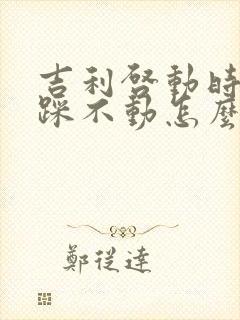 吉利啓動時
踩不動怎麼
鄭從達